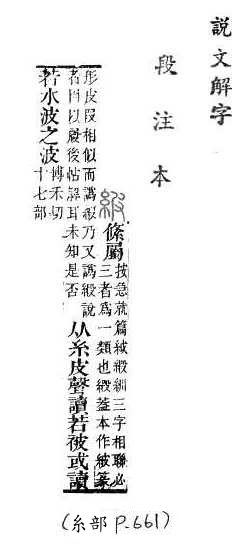 說文解字
段注本
紴
絛屬
按急就篇絨緞紃三字相聯必
三者爲一類也緞葢本作紴篆
形皮叚相似而譌緞乃又譌緞說
者因以屨後帖解耳未知是否
从糸皮聲讀若被或讀
若水波之波
博禾切
十七部
(糸部 P.661)